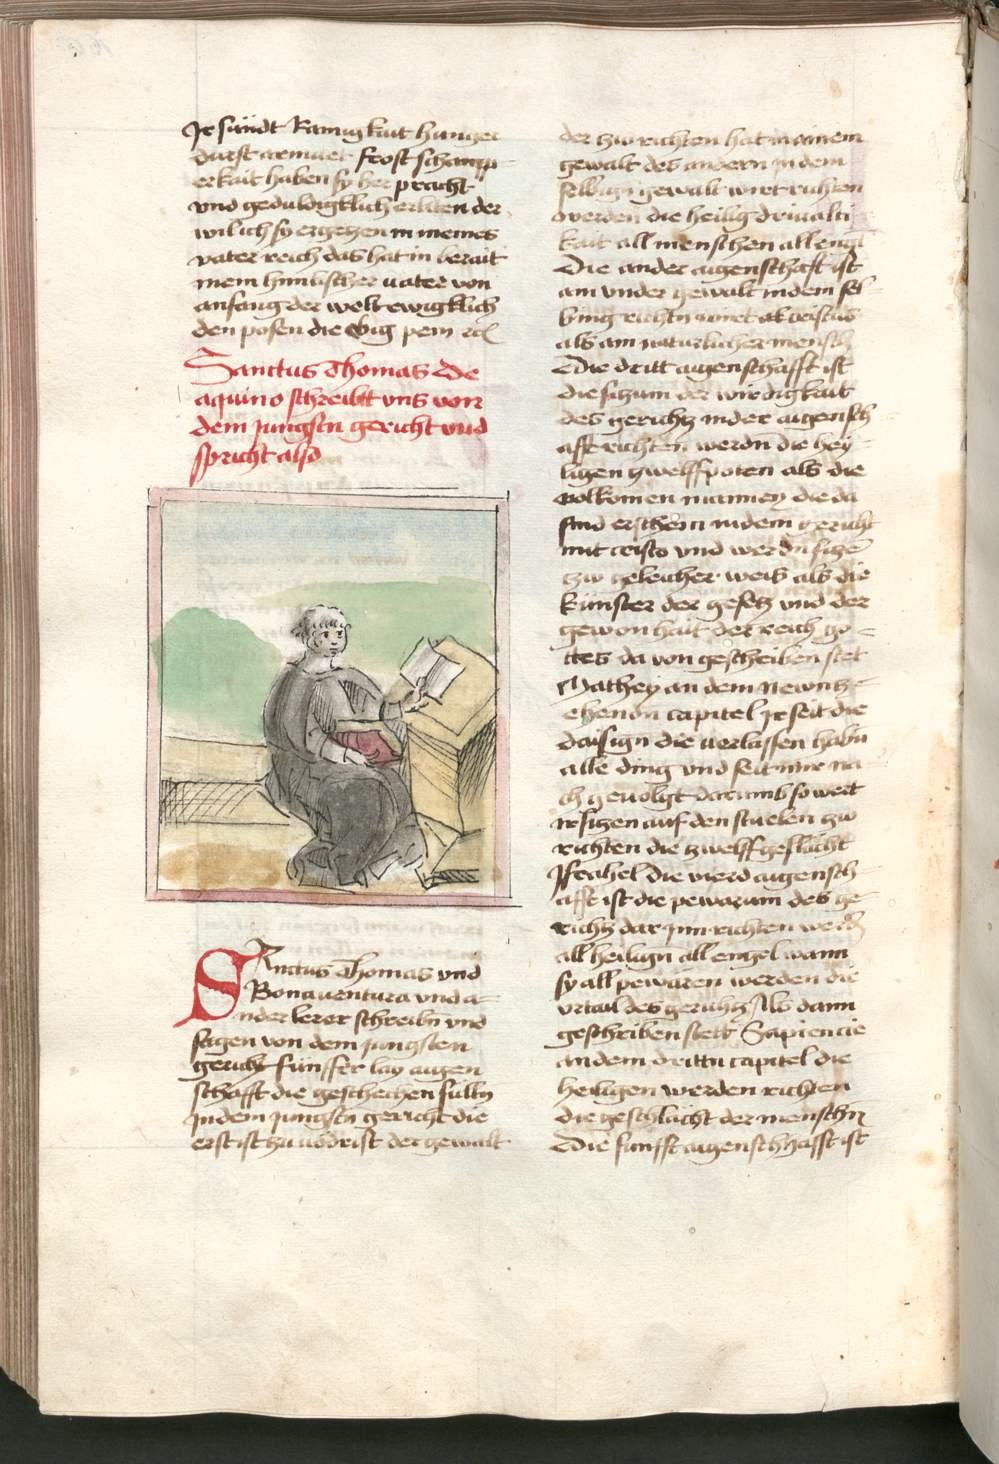 Ir sündt kranigkait hunger
durst armuet frost schamp
erkait haben sy her pracht
vnd geduldigklich erliten der
wil ich sy ergeczen in meines
vater reich das hat in berait
mein himlischer uater von
anfang der welt ewigklich
den posen die ebig pein rcl
Sanctus Thomas de
aquino schreibtt vns von
dem jungsten gericht vnd
spricht also
Sanctus Thomas vnd
Bonauentura vnd a=
nder lerer schreibn vnd
sagen von dem jungsten
gericht fünffer lay aigen
schafft die geschechen sulln
Indem jungstn gericht die
erst ist zu uodrist der gewalt
der zw richten hat in ainem
gewalt des andern in dem
selbign gewalt wirt richten
werden die heilig driualti
kait all menschen all engl
Die ander aigenschafft ist
ain vnder gewalt in dem sel=
bing richtn wirt ak cristus
als ain naturlicher mensch
Die dritt aigenschafft ist
die siczum der wirdigkait
des gerichtz in der aigensch
afft richten werdn die hey=
ligen zwelff poten als die
volkomen manney die da
sind erschein in dem gericht
mit cristo vnd werdn siczn
zw geleicher weis als die
künster der gesetz vnd der
gewonhait der reich go=
ttes da von geschriben stet
Mathey an dem newntze=
ehenon capitel Ir seit die
daisign die uerlassen habn
alle ding vnd seit mir na=
ch geuolgt darumb so wert
ir siczen auf den stuelen zw
richten die zwelff geslächt
Israhel die vierd aigensch=
afft ist die pewarum des ge=
richtz dar inn richten werdn
all heilign all engel wann
sy all pewären werden die
vrtail des gerichtz Als dann
geschriben stett Sapiencie
an dem drittn capitel die
heiligen werden richten
die geschlächt der menschn
Die funfft aigenschhafft ist